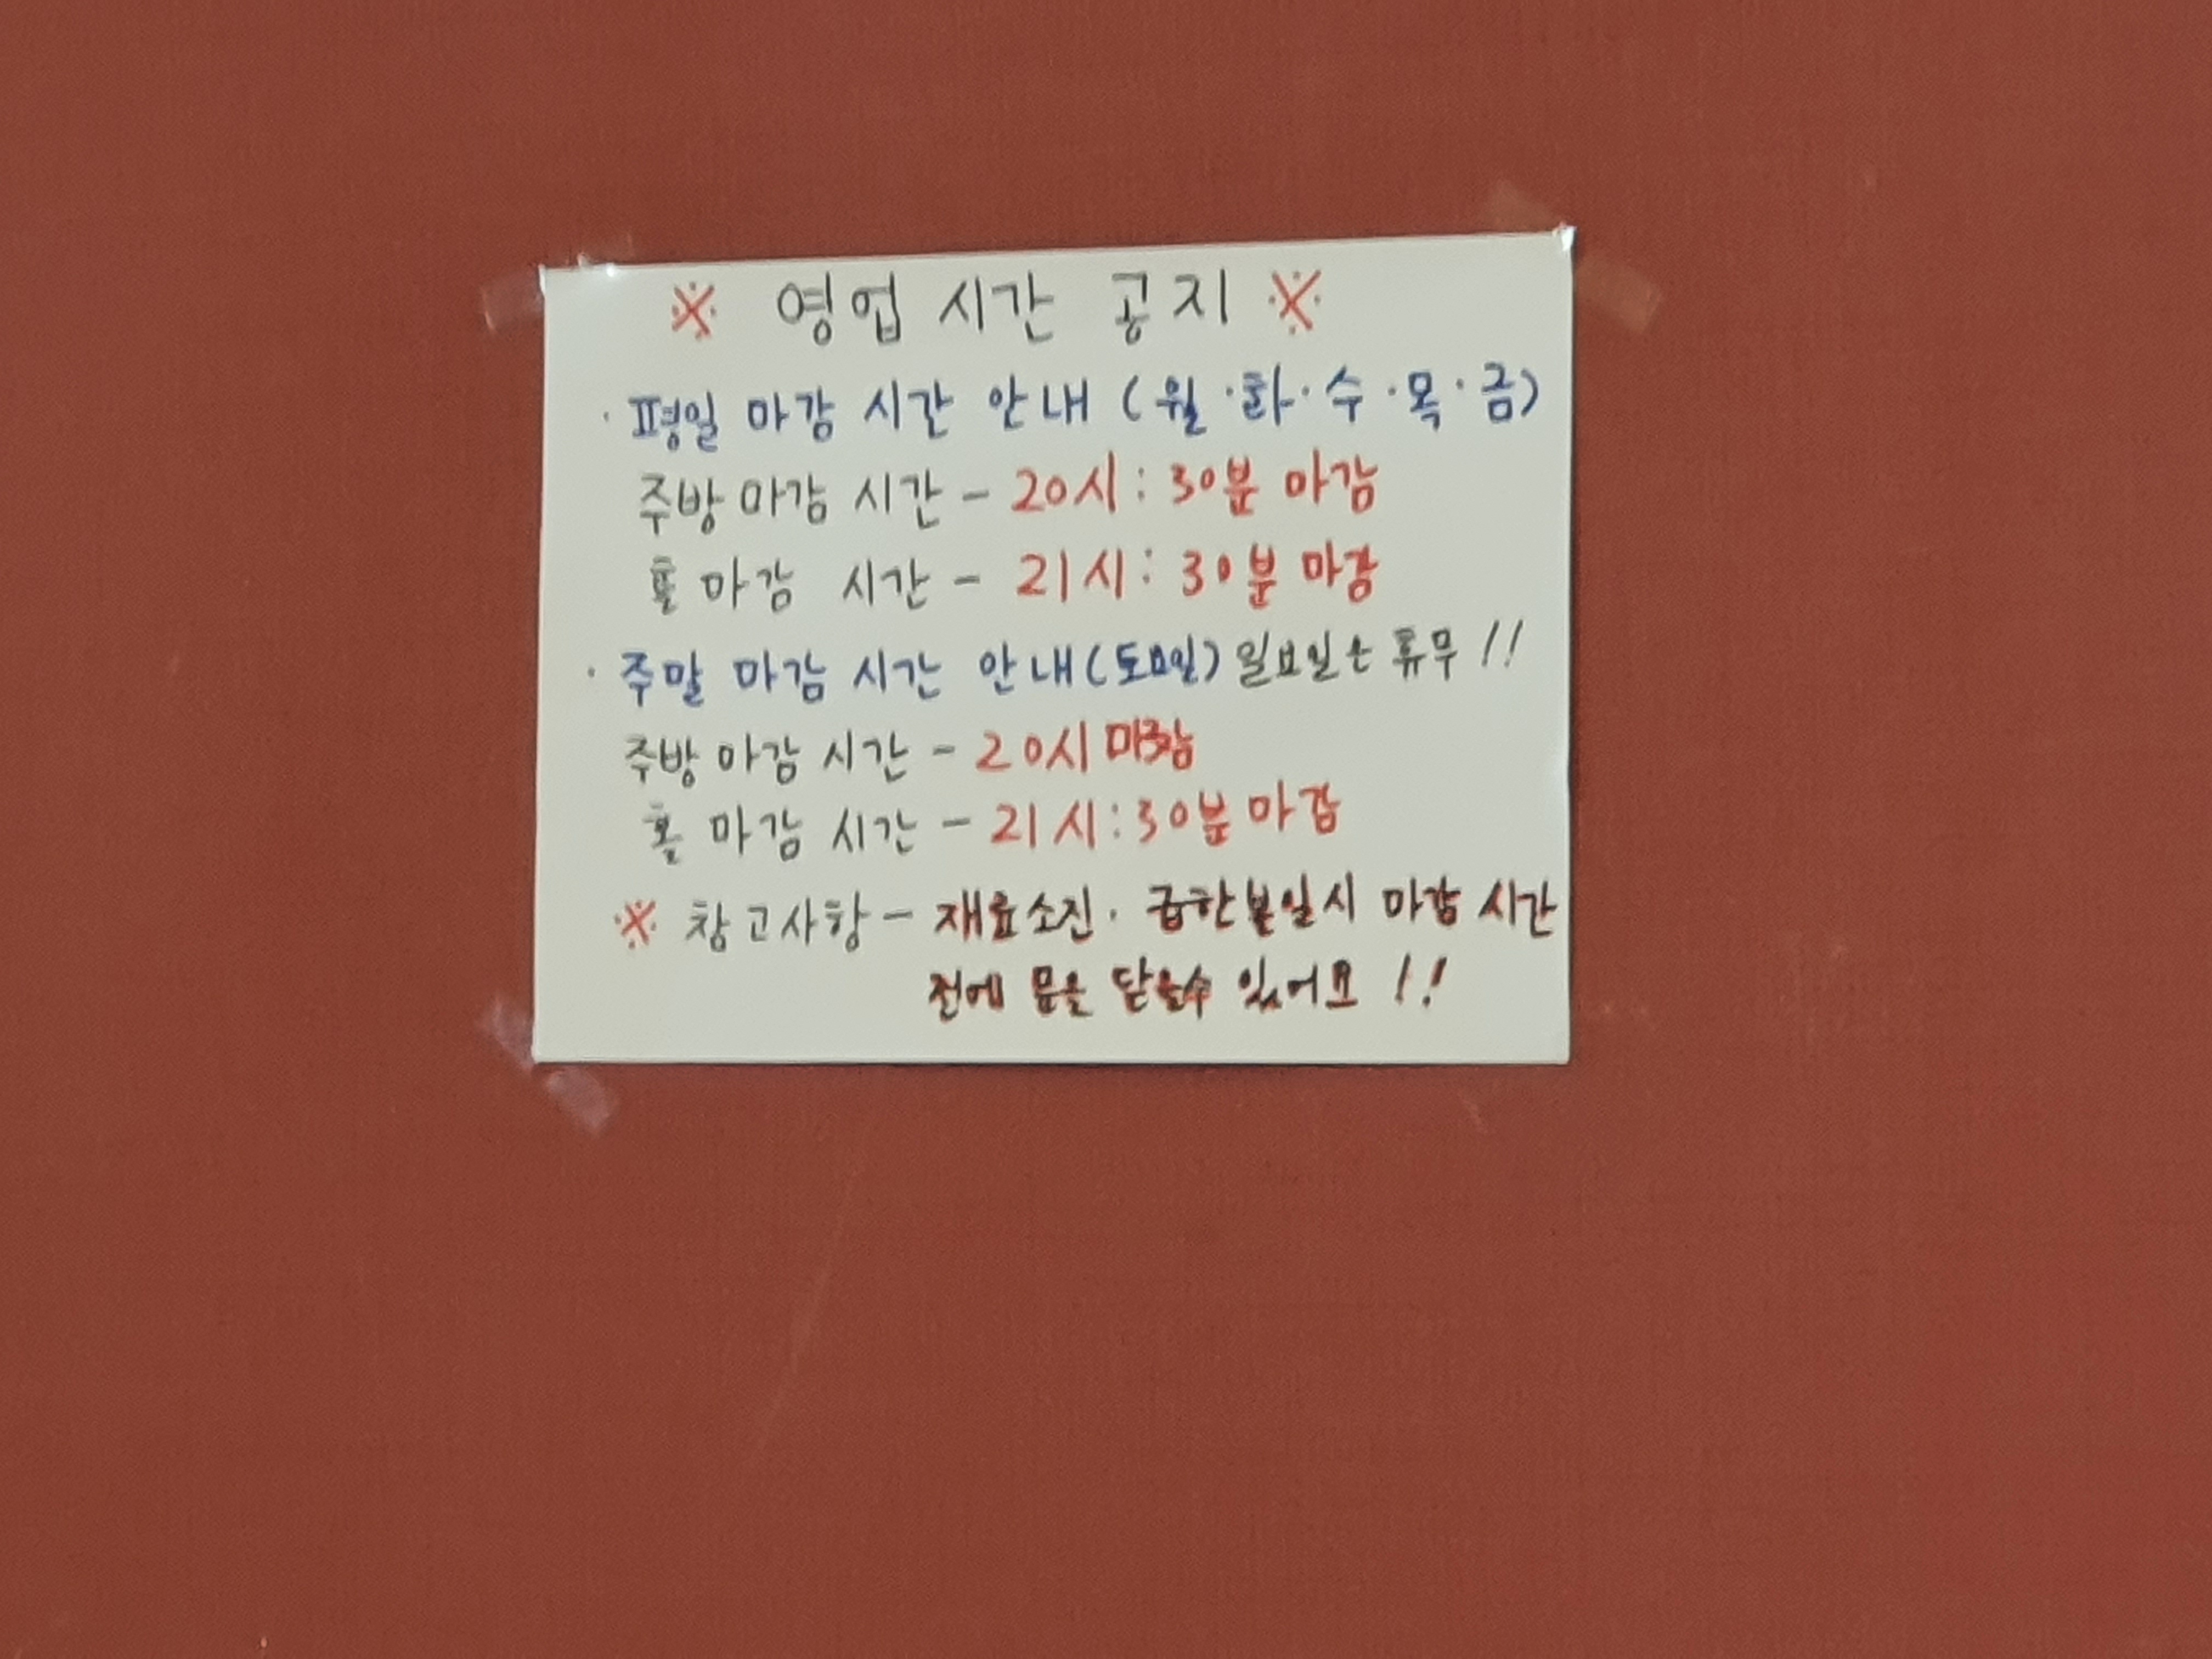 ※ 영업 시간 공지 ※
· 평일 마감 시간 안내 (월·화·수·목·금)
주방 마감 시간 - 20시:30분 마감
홀 마감 시간 - 21시:30분 마감
· 주말 마감 시간 안내(토요일) 일요일은 휴무!!
주방 마감 시간 - 20시 마감
홀 마감 시간 - 21시:30분 마감
※ 참고사항 - 재료소진. 급한볼일시 마감 시간
전에 문을 닫을수 있어요!!